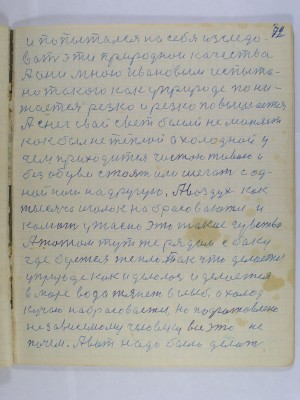 72
и попытался на себя изследо-
вать эти природной качества
А они мною Ивановым испыта-
но такого как у природе пони-
жается резко и резко повышается
А снег свой свет белый не меняет
как был не тёплой а холодной у
чем приходится чистою телою и
без обуви стоять или шагать с од-
ной ногой на другую. А воздух как
тысяча иголок набрасывается и
колють ужасно это такие чувства
А потом тут же рядом с баку
где будется тепло. Так что делается
у природе как и делалося и делается
в море вода тянет в глыб. а холод
кучою набрасывается. Но подготовлено
независимому человеку все это не
почем. А вот надо было делать